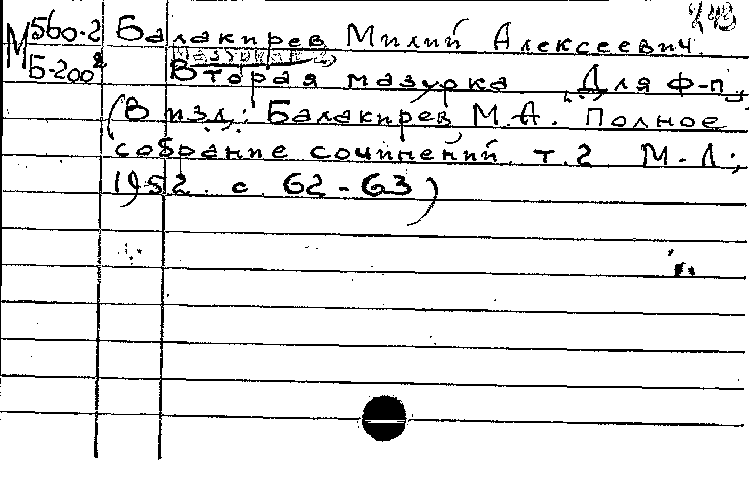 М 560-2 Балакирев Милий Алексеевич.
Б-200 Вторая мазурка. Для ф-п.
(В изд.: Балакирев, М.А. Полное
собрание сочинений, т.2 М.-Л.,
1952. с. 62-63)